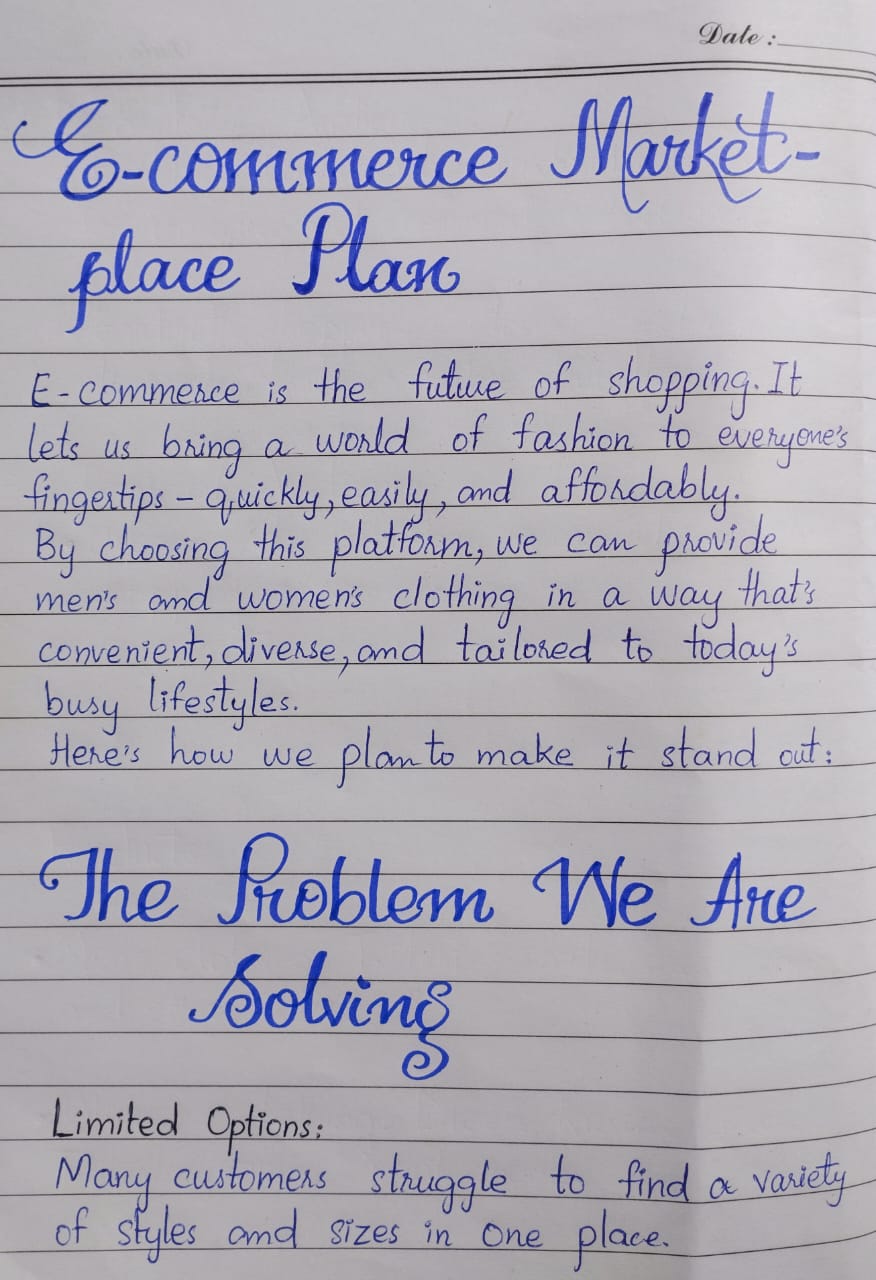 Date:
E-commerce Market-
place Plan
E-commerce is the future of shopping. It
lets us bring a world of fashion to everyone's
fingertips - quickly, easily, and affordably.
By choosing this platform, we can provide
men's and women's clothing in a way that's
convenient, diverse, and tailored to today's
busy lifestyles.
Here's how we plan to make it stand out:
The Problem We Are
Solving
Limited Options:
Many customers struggle to find a variety
of styles and sizes in one place.